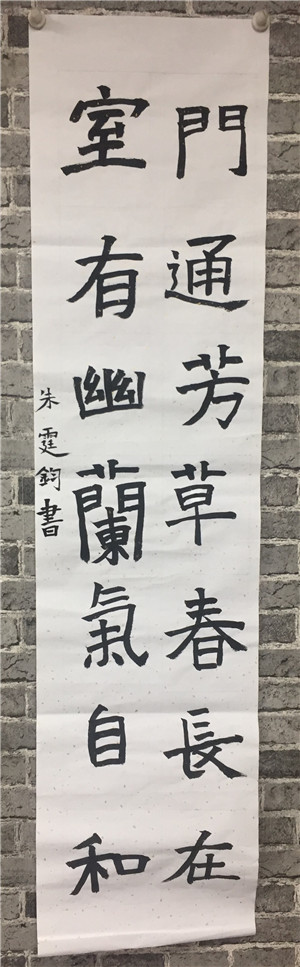 門通芳草春長在
室有幽蘭氣自和
朱霆鈞書